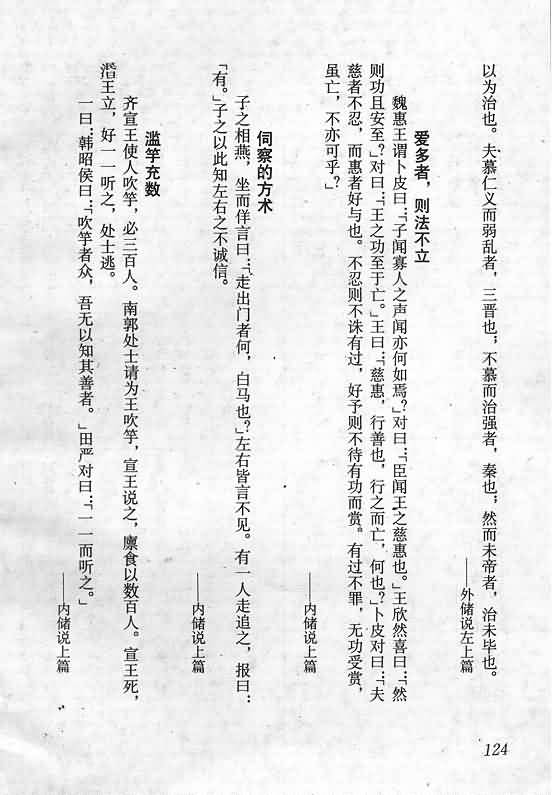 以为治也。夫慕仁义而弱乱者，三晋也；不慕而治强者，秦也；然而未帝者，治未毕也。
——外储说左上篇
爱多者，则法不立
魏惠王谓卜皮曰：「子闻寡人之声闻亦何如焉？」对曰：「臣闻王之慈惠也。」王欣然喜曰：「然
则功且安至？」对曰：「王之功至于亡。」王曰：「慈惠，行善也，行之而亡，何也？」卜皮对曰：「夫
慈者不忍，而惠者好与也。不忍则不诛有过，好予则不待有功而赏。有过不罪，无功受赏，
虽亡，不亦可乎？」
——内储说上篇
伺察的方术
子之相燕，坐而佯言曰：「走出门者何，白马也？」左右皆言不见。有一人走追之，报曰：
「有。」子之以此知左右之不诚信。
——内储说上篇
滥竽充数
齐宣王使人吹竽，必三百人。南郭处士请为王吹竽，宣王说之，廪食以数百人。宣王死，
湣王立，好一一听之，处士逃。
一曰：韩昭侯曰：「吹竽者众，吾无以知其善者。」田严对曰：「一一而听之。」
——内储说上篇
124